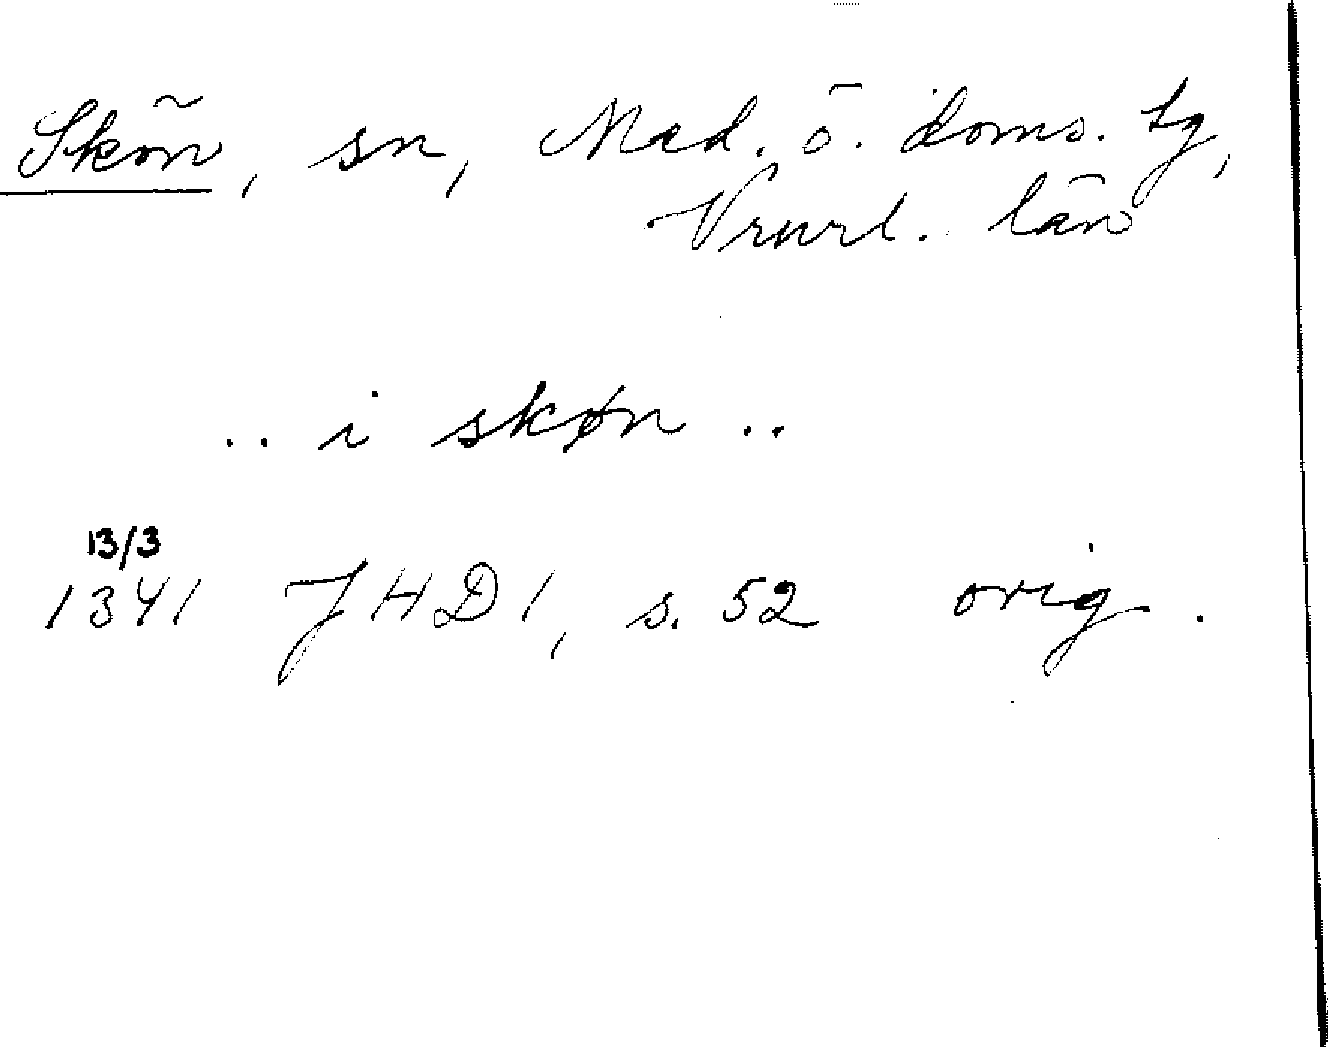 Skön, sn, Med. ö. doms. tg,
Vrnrl. län
.. i skøn ..
13/3
1341 JHD 1, s. 52 orig.